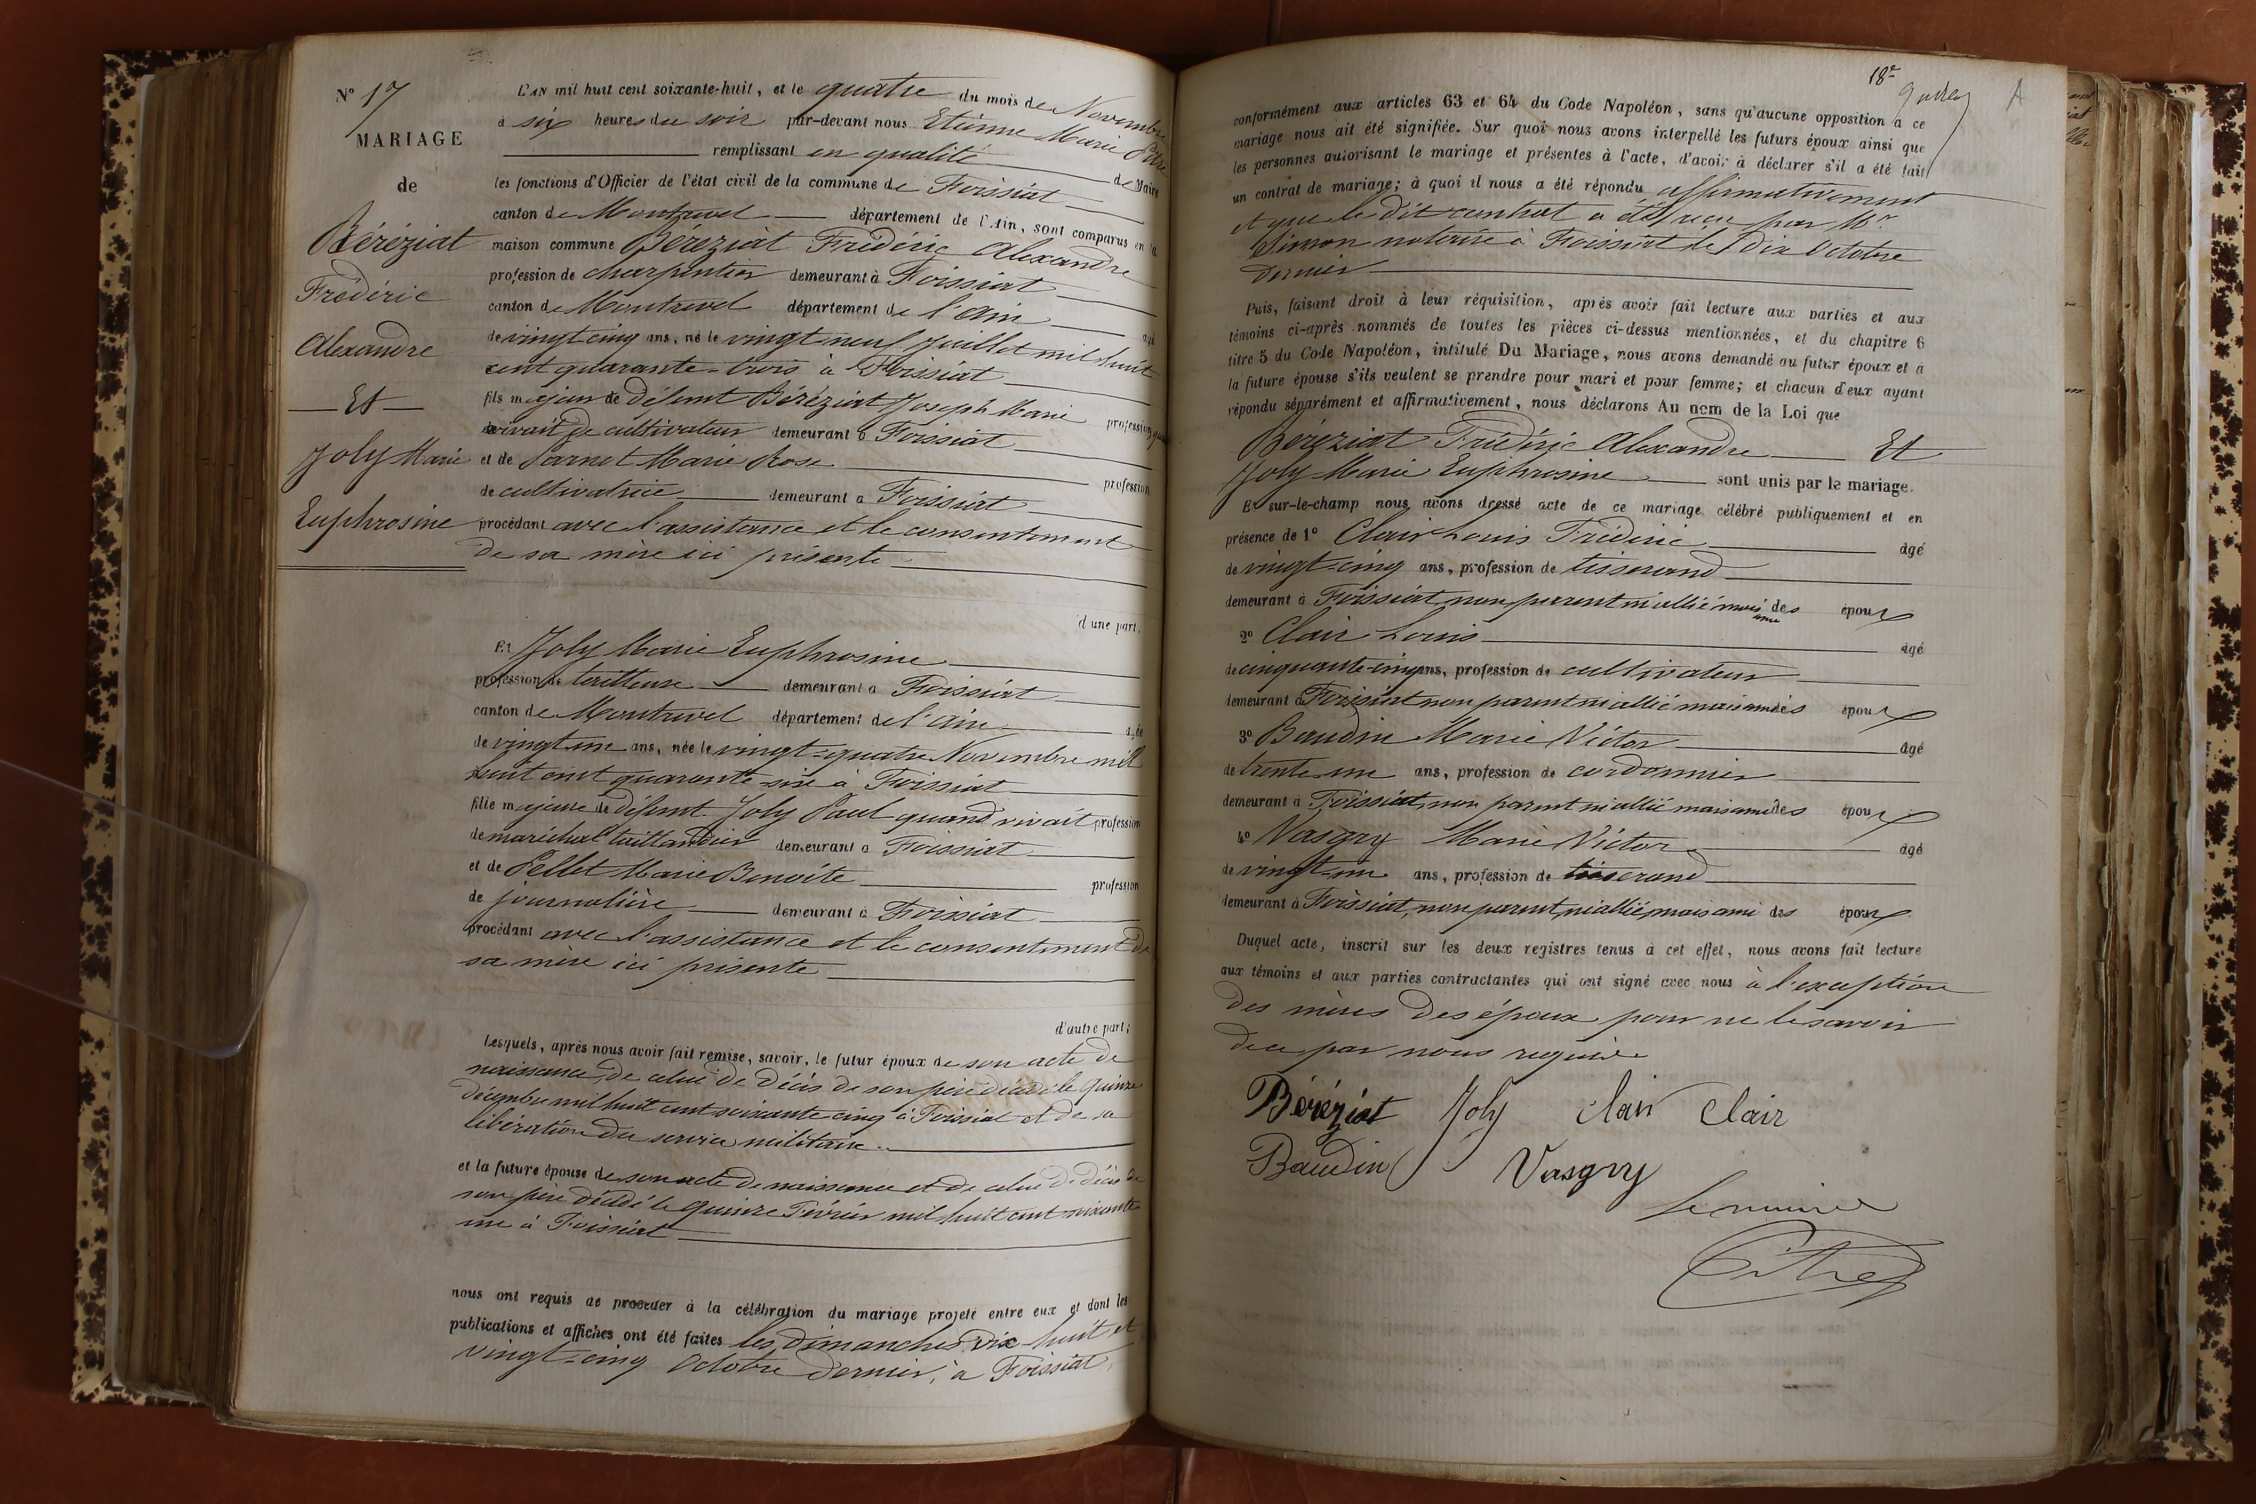 N° 17
MARIAGE
de
Béréziat
Frédéric
Alexandre
Et
Joly Marie
Euphrosine
L'AN mil huit cent soixante-huit, et le quatre du mois de Novembre
à six heures du soir par-devant nous Etienne Marie Pitre
remplissant en qualité de Maire
les fonctions d'Officier de l'état civil de la commune de Foissiat
canton de Montrevel département de l'Ain, sont comparus en la
maison commune Béréziat Frédéric Alexandre
profession de charpentier demeurant à Foissiat
canton de Montrevel département de l'Ain agé
de vingt cinq ans, né le vingt neuf Juillet mil huit
cent quarante-trois à Foissiat
fils majeur de défunt Béréziat Joseph Marie profession quand
vivait de cultivateur demeurant à Foissiat
et de Parnet Marie Rose profession
de cultivatrice demeurant à Foissiat
procédant avec l'assistance et le consentement
de sa mère ici présente
d'une part,
Et Joly Marie Euphrosine
profession de tailleuse demeurant à Foissiat
canton de Montrevel département de l'Ain agée
de vingt-un ans, née le vingt-quatre Novembre mil
huit cent quarante-six à Foissiat
fille majeure de défunt Joly Paul quand vivait profession
de maréchal taillandier demeurant à Foissiat
et de Pellet Marie Benoite profession
de journalière demeurant à Foissiat
procédant avec l'assistance et le consentement de
sa mère ici présente
d'autre part;
Lesquels, après nous avoir fait remise, savoir, le futur époux de son acte de
naissance, de celui de décès de son père décédé le quinze
décembre mil huit cent soixante cinq à Foissiat et de sa
libération du service militaire
et la future épouse de son acte de naissance et de celui de décès de
son père décédé le quinze Février mil huit cent soixante
un à Foissiat
nous ont requis de procéder à la célébration du mariage projeté entre eux et dont les
publications et affiches ont été faites les dimanches dix-huit et
vingt-cinq Octobre dernier, à Foissiat,
18e
A
conformément aux articles 63 et 64 du Code Napoléon, sans qu'aucune opposition à ce
mariage nous ait été signifiée. Sur quoi nous avons interpellé les futurs époux ainsi que
les personnes autorisant le mariage et présentes à l'acte, d'avoir à déclarer s'il a été fait
un contrat de mariage; à quoi il nous a été répondu affirmativement
et que le dit contrat a été reçu par Mr
Simon notaire à Foissiat le dix Octobre
dernier
Puis, faisant droit à leur réquisition, après avoir fait lecture aux parties et aux
témoins ci-après nommés de toutes les pièces ci-dessus mentionnées, et du chapitre 6
titre 5 du Code Napoléon, intitulé Du Mariage, nous avons demandé au futur époux et à
la future épouse s'ils veulent se prendre pour mari et pour femme; et chacun d'eux ayant
répondu séparément et affirmativement, nous déclarons Au nom de la Loi que
Béréziat Frédéric Alexandre Et
Joly Marie Euphrosine sont unis par le mariage.
Et sur-le-champ nous avons dressé acte de ce mariage célébré publiquement et en
présence de 1° Clair Louis Frédéric agé
de vingt-cinq ans, profession de tisserand
demeurant à Foissiat, non parent ni allié mais ami des époux
2° Clair Louis agé
de cinquante-cinq ans, profession de cultivateur
demeurant à Foissiat non parent ni allié mais ami des époux
3° Baudin Marie Victor agé
de trente-un ans, profession de cordonnier
demeurant à Foissiat, non parent ni allié mais ami des époux
4° Vasgry Marie Victor agé
de vingt-un ans, profession de tisserand
demeurant à Foissiat, non parent, ni allié, mais ami des époux
Duquel acte, inscrit sur les deux registres tenus à cet effet, nous avons fait lecture
aux témoins et aux parties contractantes qui ont signé avec nous à l'exception
des mères des époux pour ne le savoir
de ce par nous requise
Béréziat Joly Clair Clair
Baudin Vasgry
Le maire
Pitre